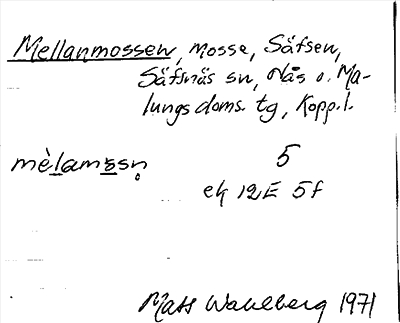 Mellanmossen, mosse, Säfsen,
Säfsnäs sn, Nås o. Ma-
lungs doms. tg, Kopp. l.
mèlamåsn̥ 5
ek 12E 5f
Mats Wahlberg 1971